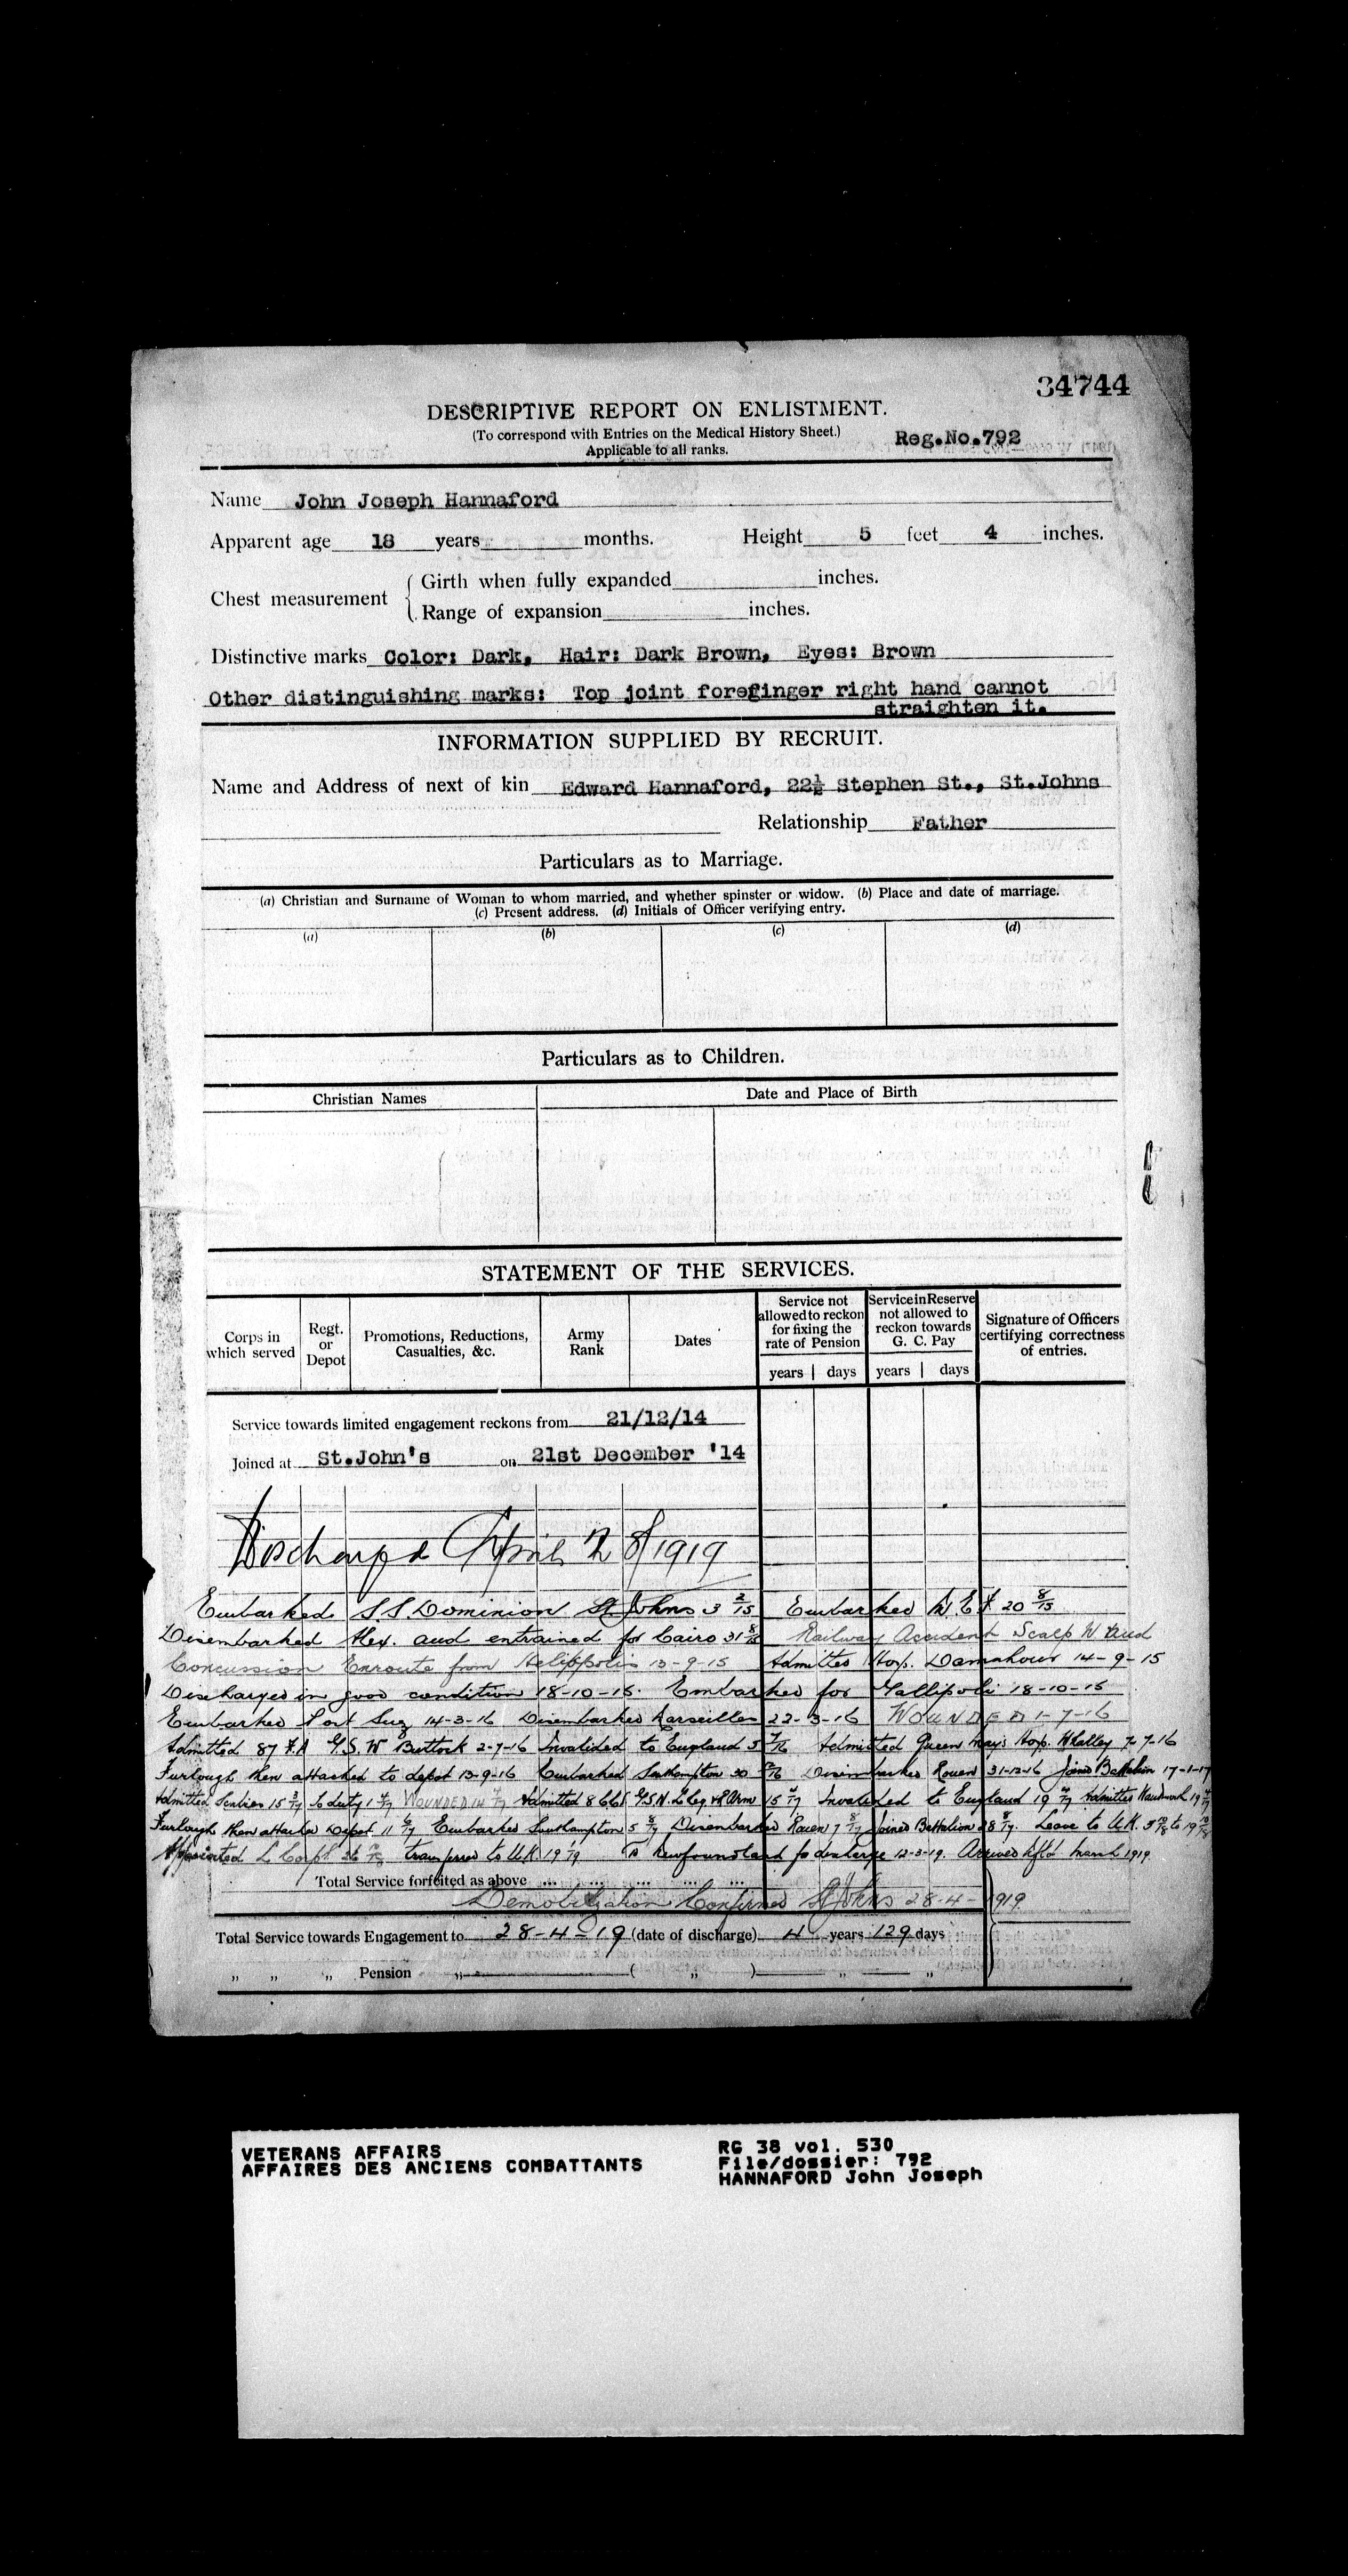 34744
DESCRIPTIVE REPORT ON ENLISTMENT.
(To correspond with Entries on the Medical History Sheet.)
Reg.No.792
Applicable to all ranks.
Name John Joseph Hannaford
Apparent age 18 years months. Height 5 feet 4 inches.
Chest measurement
Girth when fully expanded inches.
Range of expansion inches.
Distinctive marks Color: Dark, Hair: Dark Brown, Eyes: Brown
Other distinguishing marks: Top joint forefinger right hand cannot
straighten it.
INFORMATION SUPPLIED BY RECRUIT.
Name and Address of next of kin Edward Hannaford, 22½ Stephen St., St.Johns
Relationship Father
Particulars as to Marriage.
(a) Christian and Surname of Woman to whom married, and whether spinster or widow. (b) Place and date of marriage.
(c) Present address. (d) Initials of Officer verifying entry.
(a) (b) (c) (d)
Particulars as to Children.
Christian Names Date and Place of Birth
STATEMENT OF THE SERVICES.
Corps in which served
Regt. or Depot
Promotions, Reductions, Casualties, &c.
Army Rank
Dates
Service not allowed to reckon for fixing the rate of Pension
Service in Reserve not allowed to reckon towards G. C. Pay
Signature of Officers certifying correctness of entries.
years days years days
Service towards limited engagement reckons from 21/12/14
Joined at St.John's on 21st December '14
Discharged April 28/1919
Embarked S.S. Dominion St Johns 3 2/15 Embarked M.E.F. 20 8/15
Disembarked Alex. and entrained for Cairo 31 8/15 Railway Accident Scalp W and
Concussion Enroute from Helippolis 13-9-15 Admitted Hosp. Damahour 14-9-15
Discharged in good condition 18-10-15. Embarked for Gallipoli 18-10-15
Embarked Port Suez 14-3-16 Disembarked Marseilles 22-3-16 WOUNDED 1-7-16
Admitted 87 F.A G.S.W Buttock 2-7-16 Invalided to England 5 7/16 Admitted Queen Mary's Hosp. Whalley 7-7-16
Furlough then attached to depot 13-9-16 Embarked Southampton 30 12/16 Disembarked Rouen 31-12-16 Joined Battalion 17-1-17
Admitted 15 3/17 to duty 1 4/17 WOUNDED 14 4/17 Admitted G.S.W. L leg & R Arm 15 4/17 Invalided to England 19 4/17 Admitted Wandsworth 19 4/17
Furlough then attached Depot 11 6/17 Embarked Southampton 5 8/17 Disembarked Rouen 7 8/17 Joined Battalion 28 8/17. Leave to U.K. to
Appointed L Corpl 26 transferred to U.K. 19 To Newfoundland for discharge 12-3-19. Arrived Nfld March 1919
Total Service forfeited as above ... ... ... ... ...
Demobilization Confirmed St Johns 28-4-1919.
Total Service towards Engagement to 28-4-19 (date of discharge) 4 years 129 days
„ „ „ Pension „ ( „ ) „ „
VETERANS AFFAIRS
AFFAIRES DES ANCIENS COMBATTANTS
RG 38 vol. 530
File/dossier: 792
HANNAFORD John Joseph